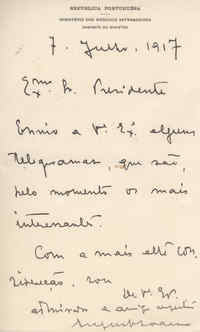 REPUBLICA PORTUGUÊSA
MINISTÉRIO DOS NEGÓCIOS ESTRANGEIROS
GABINETE DO MINISTRO
7. Julho, 1917
Exmo Sr. Presidente
Envio a V. Ex. alguns
telegramas, que são,
pelo momento os mais
interessantes.
Com a mais alta con
sideração, sou
De V. Ex.
admirador e amigo